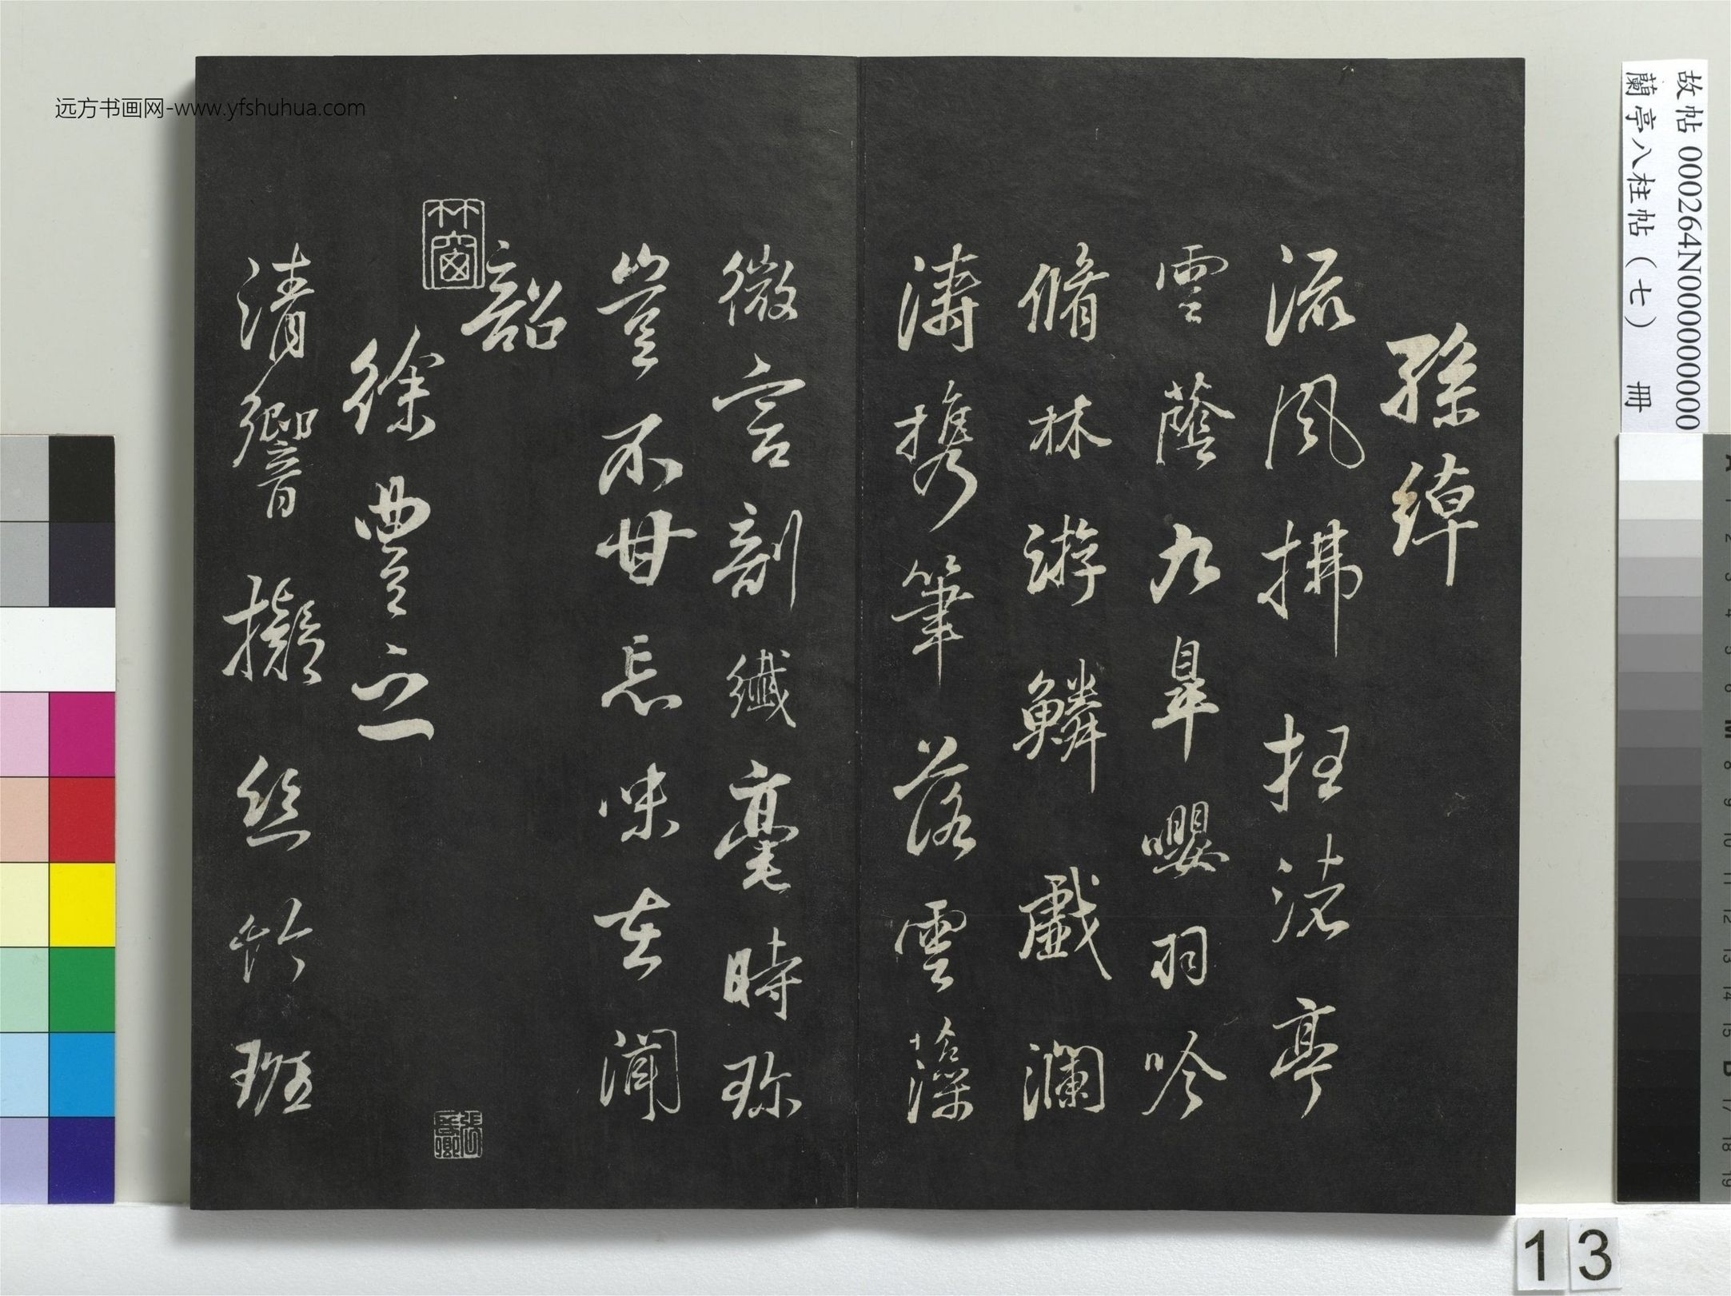 孫綽
流風拂枉渚亭
雲蔭九皐嚶羽吟
脩林游鱗戲瀾
濤携筆落雲藻
微言剖纖毫時珍
豈不甘忘味在聞
韶
徐豐之
清響擬絲竹班
林窗
远方书画网-www.yfshuhua.com
故帖 000264N000000000
蘭亭八柱帖（七） 冊
13